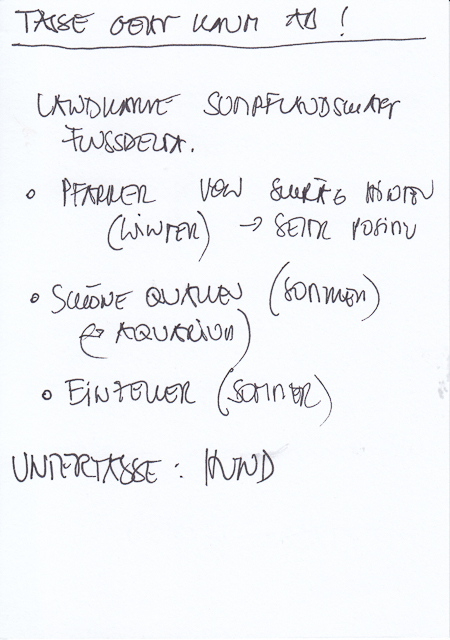 TASSE GEHT KAUM AB!
LANDKARTE SUMPFLANDSCHAFT
FLUSSDELTA.
• PFARRER VON SCHRÄG HINTEN
(WINTER) → SEHR POSITIV
• SCHÖNE QUALLEN (SOMMER)
(→ AQUARIUM)
• EINZELLER (SOMMER)
UNTERTASSE: HUND